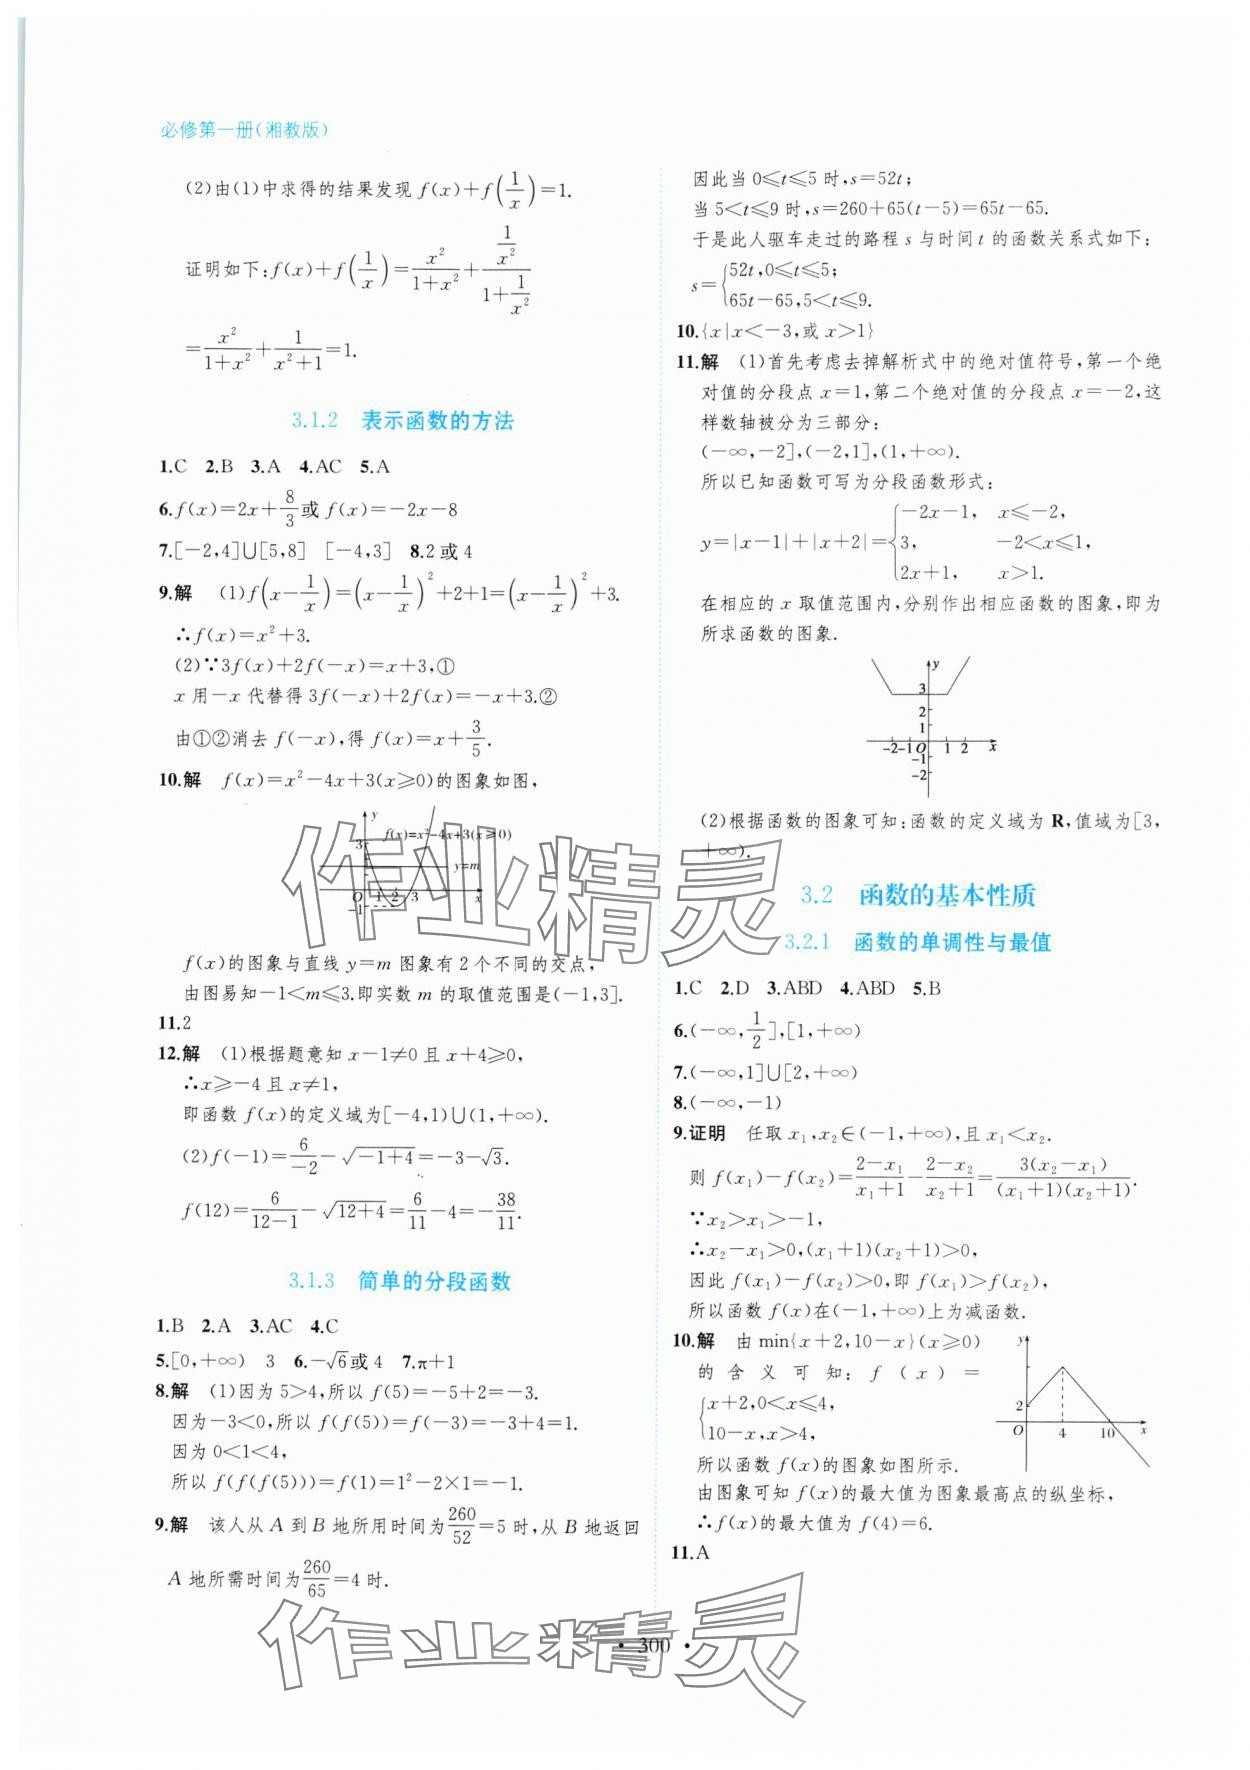 必修第一册(湘教版)
(2)由(1)中求得的结果发现 f(x)+f(1/x)=1.
证明如下:f(x)+f(1/x)=x²/(1+x²)+(1/x²)/(1+1/x²)
=x²/(1+x²)+1/(x²+1)=1.
3.1.2 表示函数的方法
1.C 2.B 3.A 4.AC 5.A
6.f(x)=2x+8/3或 f(x)=-2x-8
7.[-2,4]∪[5,8] [-4,3] 8.2 或 4
9.解 (1)f(x-1/x)=(x-1/x)²+2+1=(x-1/x)²+3.
∴f(x)=x²+3.
(2)∵3f(x)+2f(-x)=x+3,①
x 用-x 代替得 3f(-x)+2f(x)=-x+3.②
由①②消去 f(-x),得 f(x)=x+3/5.
10.解 f(x)=x²-4x+3(x≥0)的图象如图,
y
f(x)=x²-4x+3(x≥0)
3
y=m
O 1 2 3 x
-1
f(x)的图象与直线 y=m 图象有 2 个不同的交点,
由图易知-1<m≤3.即实数 m 的取值范围是(-1,3].
11.2
12.解 (1)根据题意知 x-1≠0 且 x+4≥0,
∴x≥-4 且 x≠1,
即函数 f(x)的定义域为[-4,1)∪(1,+∞).
(2)f(-1)=6/-2-√(-1+4)=-3-√3.
f(12)=6/(12-1)-√(12+4)=6/11-4=-38/11.
3.1.3 简单的分段函数
1.B 2.A 3.AC 4.C
5.[0,+∞) 3 6.-√6或 4 7.π+1
8.解 (1)因为 5>4,所以 f(5)=-5+2=-3.
因为-3<0,所以 f(f(5))=f(-3)=-3+4=1.
因为 0<1<4,
所以 f(f(f(5)))=f(1)=1²-2×1=-1.
9.解 该人从 A 到 B 地所用时间为260/52=5 时,从 B 地返回
A 地所需时间为260/65=4 时.
因此当 0≤t≤5 时,s=52t;
当 5<t≤9 时,s=260+65(t-5)=65t-65.
于是此人驱车走过的路程 s 与时间 t 的函数关系式如下:
s={52t,0≤t≤5;
65t-65,5<t≤9.
10.{x|x<-3,或 x>1}
11.解 (1)首先考虑去掉解析式中的绝对值符号,第一个绝
对值的分段点 x=1,第二个绝对值的分段点 x=-2,这
样数轴被分为三部分:
(-∞,-2],(-2,1],(1,+∞).
所以已知函数可写为分段函数形式:
y=|x-1|+|x+2|={-2x-1, x≤-2,
3, -2<x≤1,
2x+1, x>1.
在相应的 x 取值范围内,分别作出相应函数的图象,即为
所求函数的图象.
y
3
2
1
-2 -1 O 1 2 x
-1
-2
(2)根据函数的图象可知:函数的定义域为 R,值域为[3,
+∞).
3.2 函数的基本性质
3.2.1 函数的单调性与最值
1.C 2.D 3.ABD 4.ABD 5.B
6.(-∞,1/2],[1,+∞)
7.(-∞,1]∪[2,+∞)
8.(-∞,-1)
9.证明 任取 x₁,x₂∈(-1,+∞),且 x₁<x₂.
则 f(x₁)-f(x₂)=(2-x₁)/(x₁+1)-(2-x₂)/(x₂+1)=3(x₂-x₁)/((x₁+1)(x₂+1)).
∵x₂>x₁>-1,
∴x₂-x₁>0,(x₁+1)(x₂+1)>0,
因此 f(x₁)-f(x₂)>0,即 f(x₁)>f(x₂),
所以函数 f(x)在(-1,+∞)上为减函数.
10.解 由 min{x+2,10-x}(x≥0)
的含义可知:f(x)=
{x+2,0<x≤4,
10-x,x>4,
y
2
O 4 10 x
所以函数 f(x)的图象如图所示.
由图象可知 f(x)的最大值为图象最高点的纵坐标,
∴f(x)的最大值为 f(4)=6.
11.A
· 300 ·
作业精灵
作业精灵